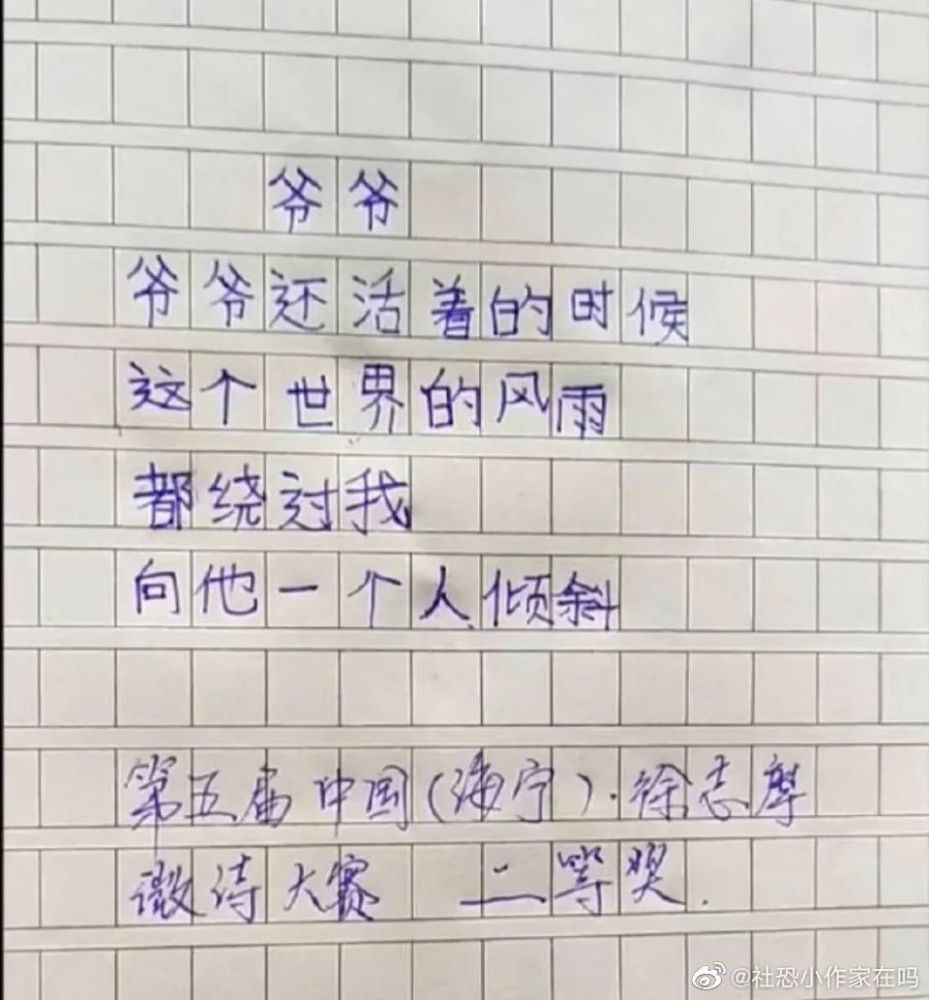 爷爷
爷爷还活着的时候
这个世界的风雨
都绕过我
向他一个人倾斜
第五届中国(海宁)·徐志摩
微诗大赛 二等奖.
@社恐小作家在吗